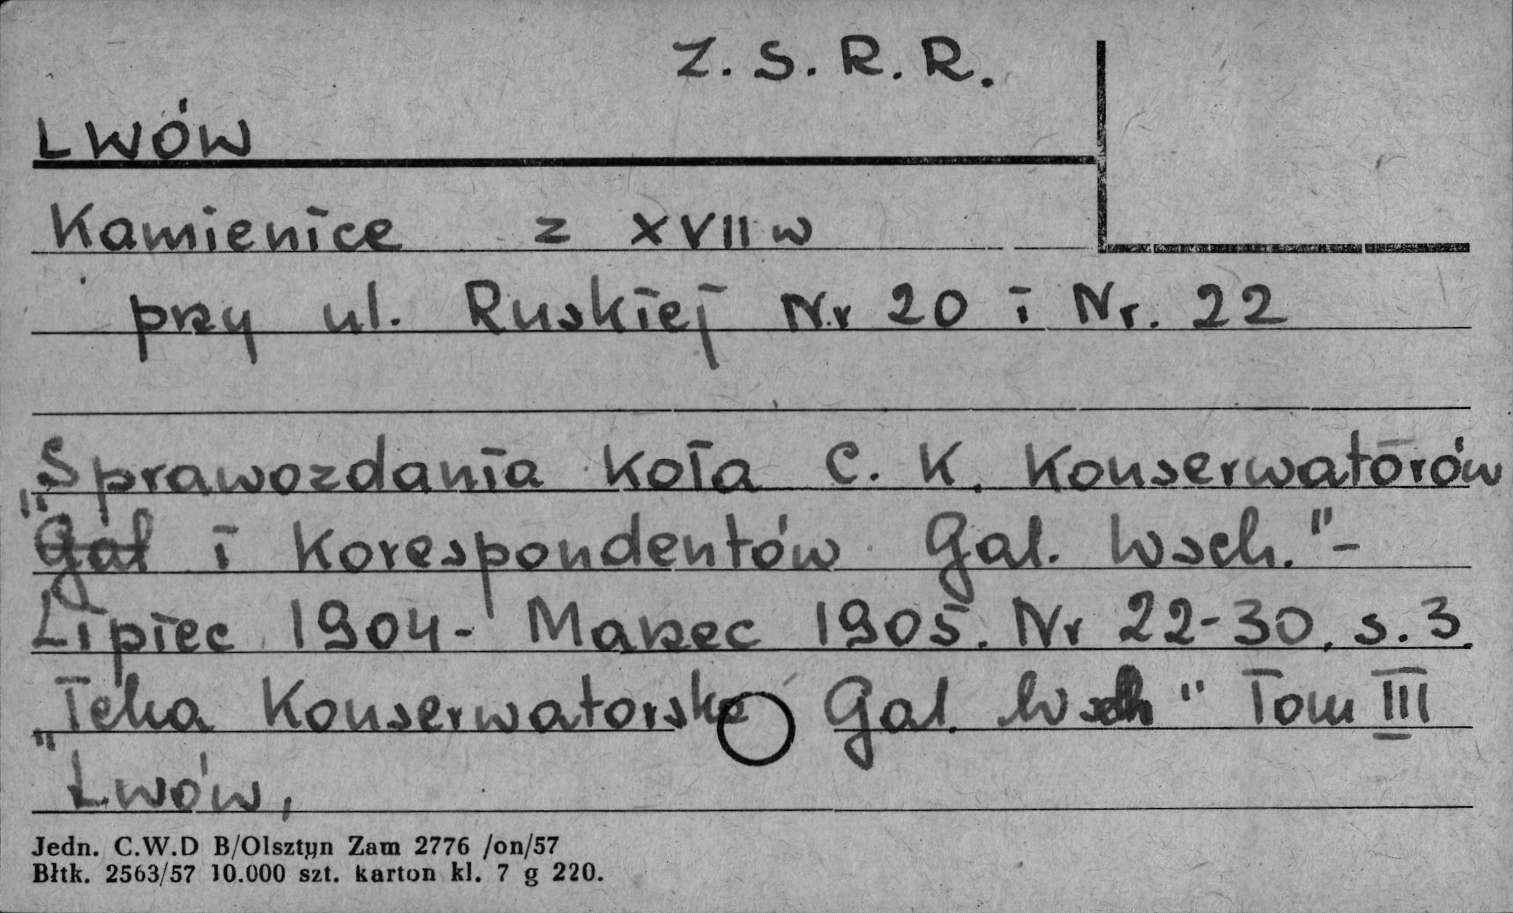 Z. S. R. R.
LWÓW
Kamienice z XVII w
przy ul. Ruskiej Nr 20 i Nr. 22
„Sprawozdania Koła C. K. Konserwatorów
Gal i Korespondentów Gal. Wsch." -
Lipiec 1904 - Marzec 1905. Nr 22-30, s. 3.
„Teka Konserwatorska Gal. Wsch" Tom III
Lwów,
Jedn. C.W.D B/Olsztyn Zam 2776 /on/57
Błtk. 2563/57 10.000 szt. karton kl. 7 g 220.